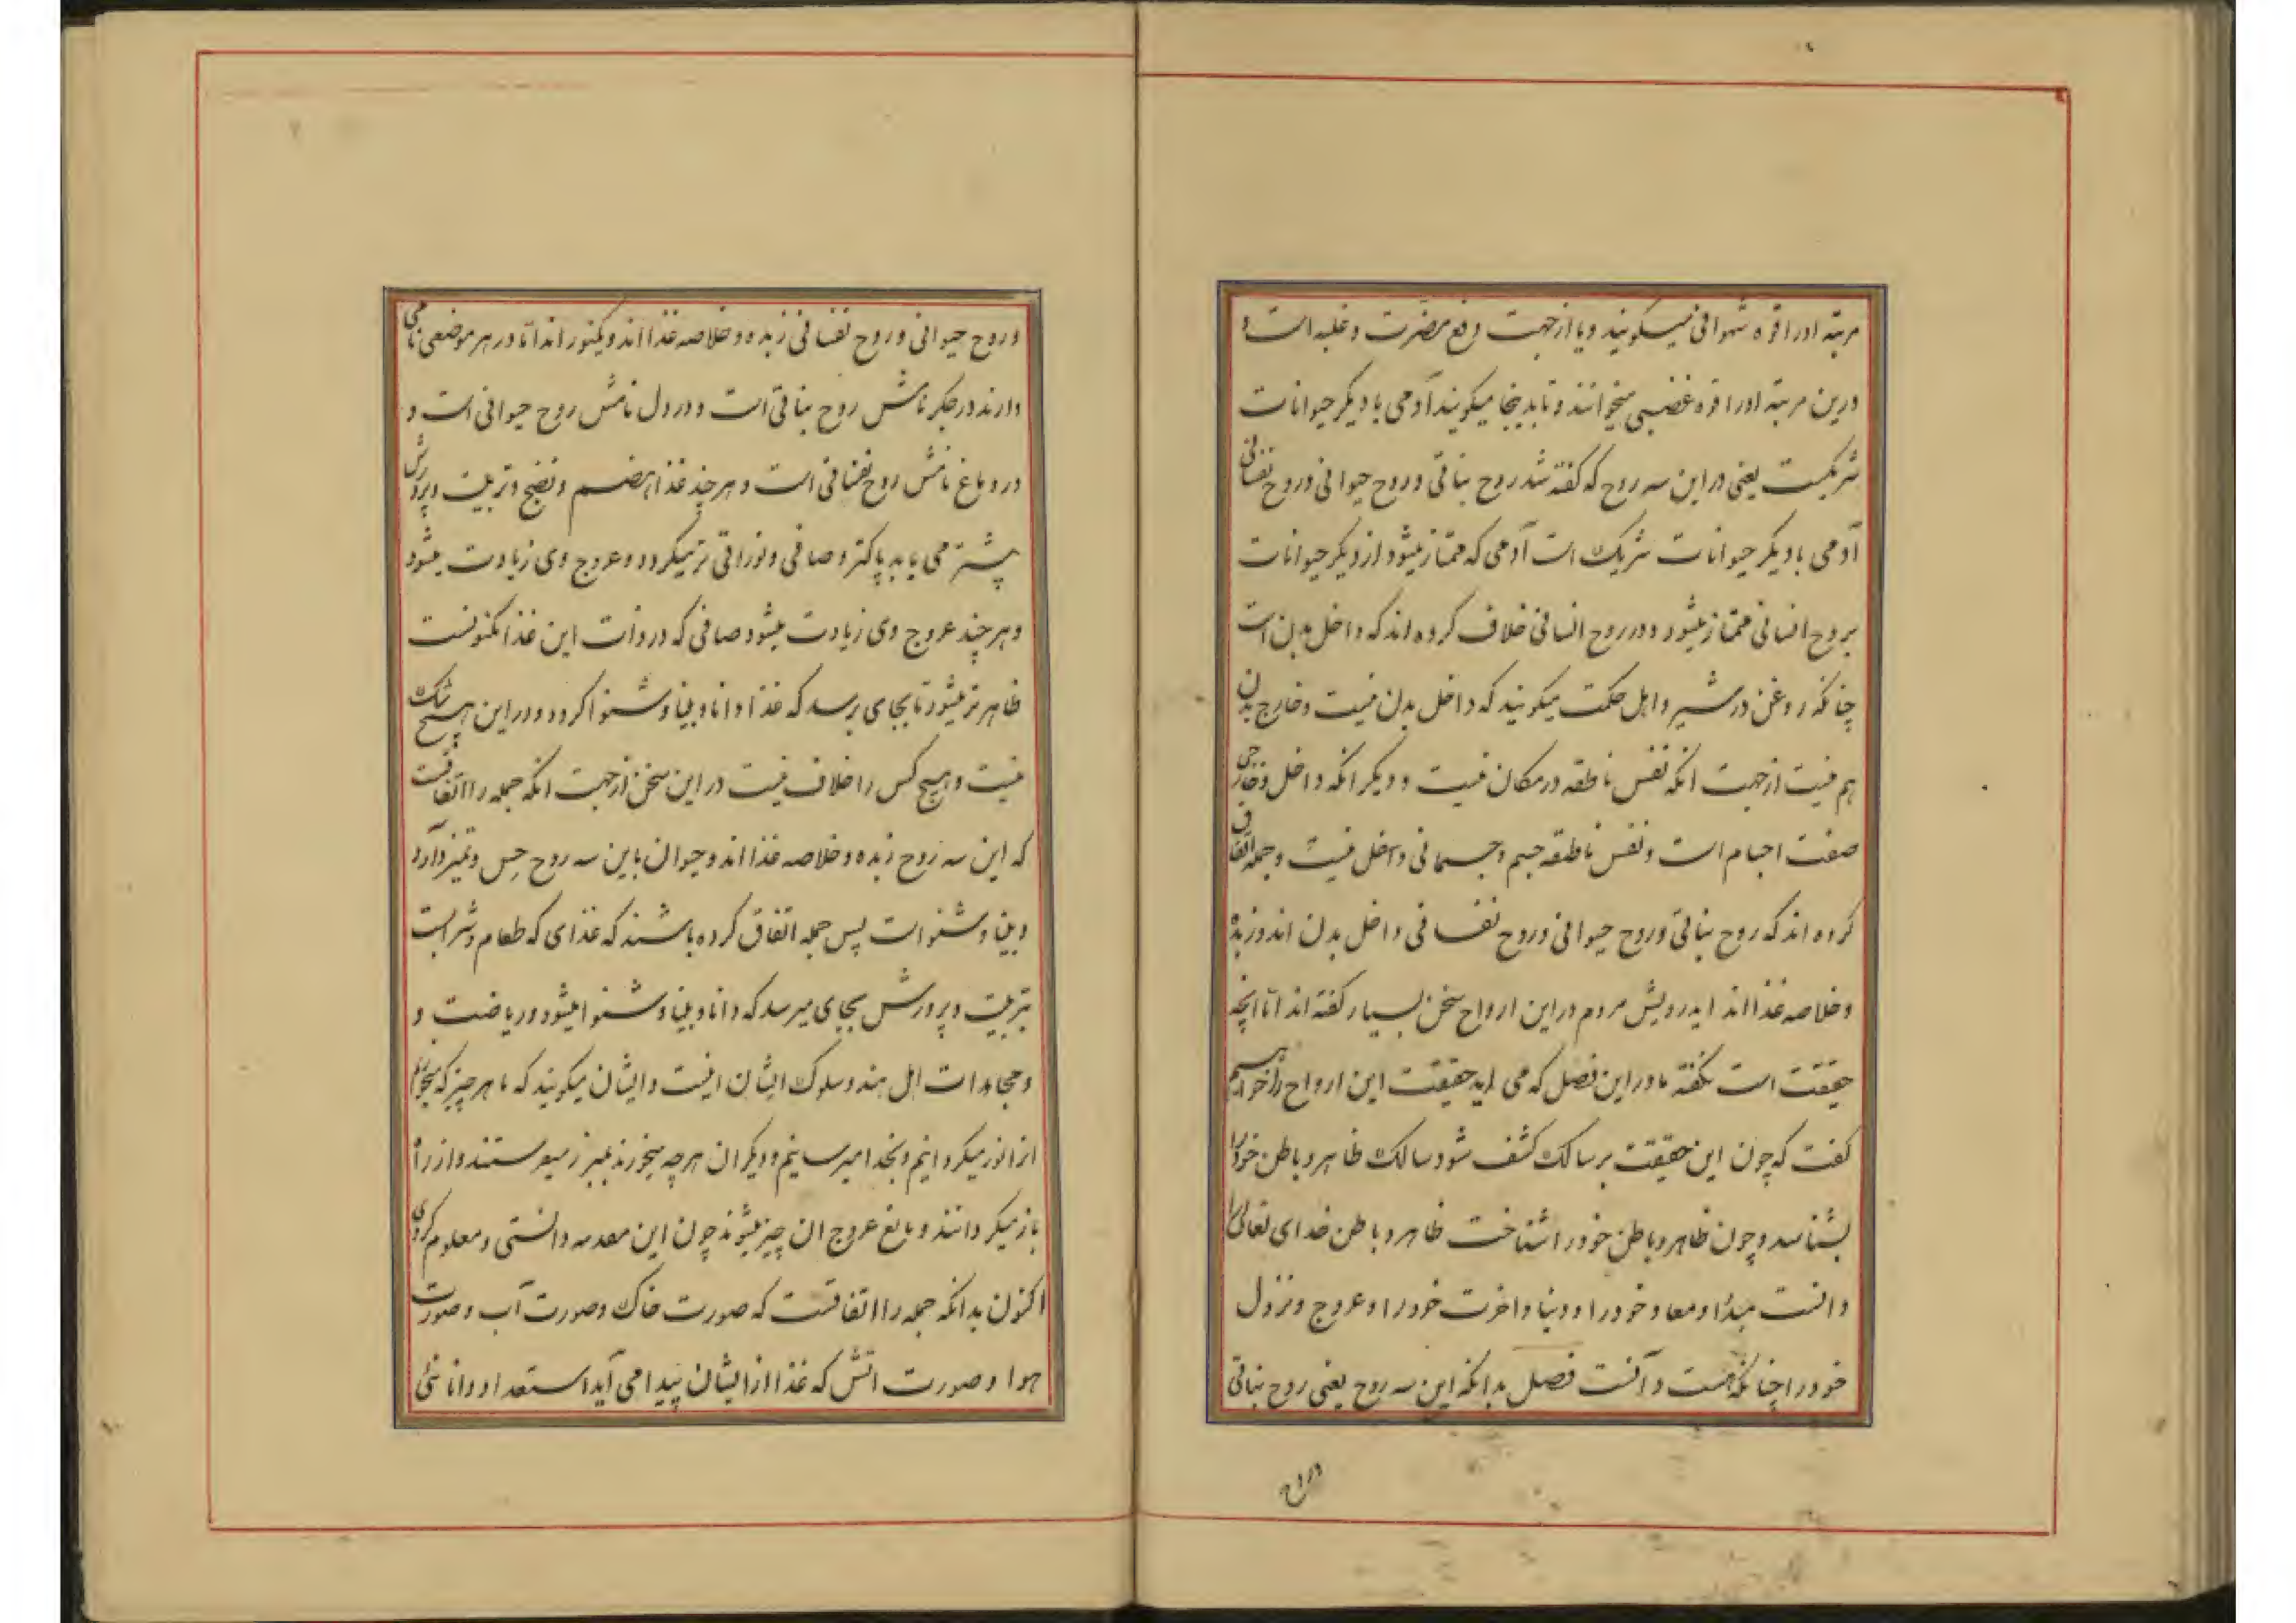 مرتبه اورا قوه شهوانی میگویند و یا از جهت دفع مضرت و غلبه است و
درین مرتبه اورا قوه غضبی میخوانند و تا بدینجا میگویند آدمی با دیگر حیوانات
شریکست یعنی در این سه روح که گفته شد روح نباتی و روح حیوانی و روح نفسانی
آدمی با دیگر حیوانات شریک است آدمی که ممتاز میشود از دیگر حیوانات
بروح انسانی ممتاز میشود و در روح انسانی خلاف کرده اند که داخل بدن است
چنانکه روغن در شیر و اهل حکمت میگویند که داخل بدن نیست و خارج بدن
هم نیست از جهت انکه نفس ناطقه در مکان نیست و دیگر انکه داخل و خارجی
صفت اجسام است و نفس ناطقه جسم و جسمانی داخل نیست و جمله اتفاق
کرده اند که روح نباتی و روح حیوانی و روح نفسانی داخل بدن اند و زبده
و خلاصه غذا اند ایدرویش مردم در این ارواح سخن بسیار گفته اند اما انچه
حقیقت است نگفته ما در این فصل که می اید حقیقت این ارواح را خواهیم
گفت که چون این حقیقت بر سالک کشف شود سالک ظاهر و باطن خود را
بشناسد و چون ظاهر و باطن خود را شناخت ظاهر و باطن خدای تعالی را
دانست مبدا و معاد خود را و دنیا و اخرت خود را و عروج و نزول
خود را چنانکه هست دانست فصل بدانکه این سه روح یعنی روح نباتی
و روح
و روح حیوانی و روح نفسانی زبده و خلاصه غذا اند و یکنور اند اما در هر موضعی نامی
دارند در جکر نامش روح نباتی است و در دل نامش روح حیوانی است و
در دماغ نامش روح نفسانی است و هر چند غذا هضم و نضج و تربیت و پرورش
بیشتر می یابد پاکتر و صافی و نورانی تر میکردد و عروج وی زیادت میشود
و هر چند عروج وی زیادت میشود صافی که در ذات این غذا مکنونست
ظاهر تر میشود تا بجای برسد که غذا دانا و بینا و شنوا کردد و در این هیچ شک
نیست و هیچ کس را خلاف نیست در این سخن از جهت انکه جمله را اتفاقست
که این سه روح زبده و خلاصه غذا اند و حیوان باین سه روح حس و تمیز دارد
و بینا و شنوا است پس جمله اتفاق کرده باشند که غذای که طعام و شراب است
بتربیت و پرورش بجای میرسد که دانا و بینا و شنوا میشود و ریاضت و
و مجاهدات اهل هند و سلوک ایشان اینست و ایشان میگویند که ما هر چیز که میخوریم
انرا نور میکردانیم و بخدا میرسانیم و دیکران هر چه میخورند بمبرز میفرستند و از راه
باز میکردانند و مانع عروج ان چیز میشوند چون این مقدمه دانستی و معلوم کردی
اکنون بدانکه جمله را اتفاقست که صورت خاک و صورت آب و صورت
هوا و صورت اتش که غذا از ایشان پیدا می آید استعداد دانائی